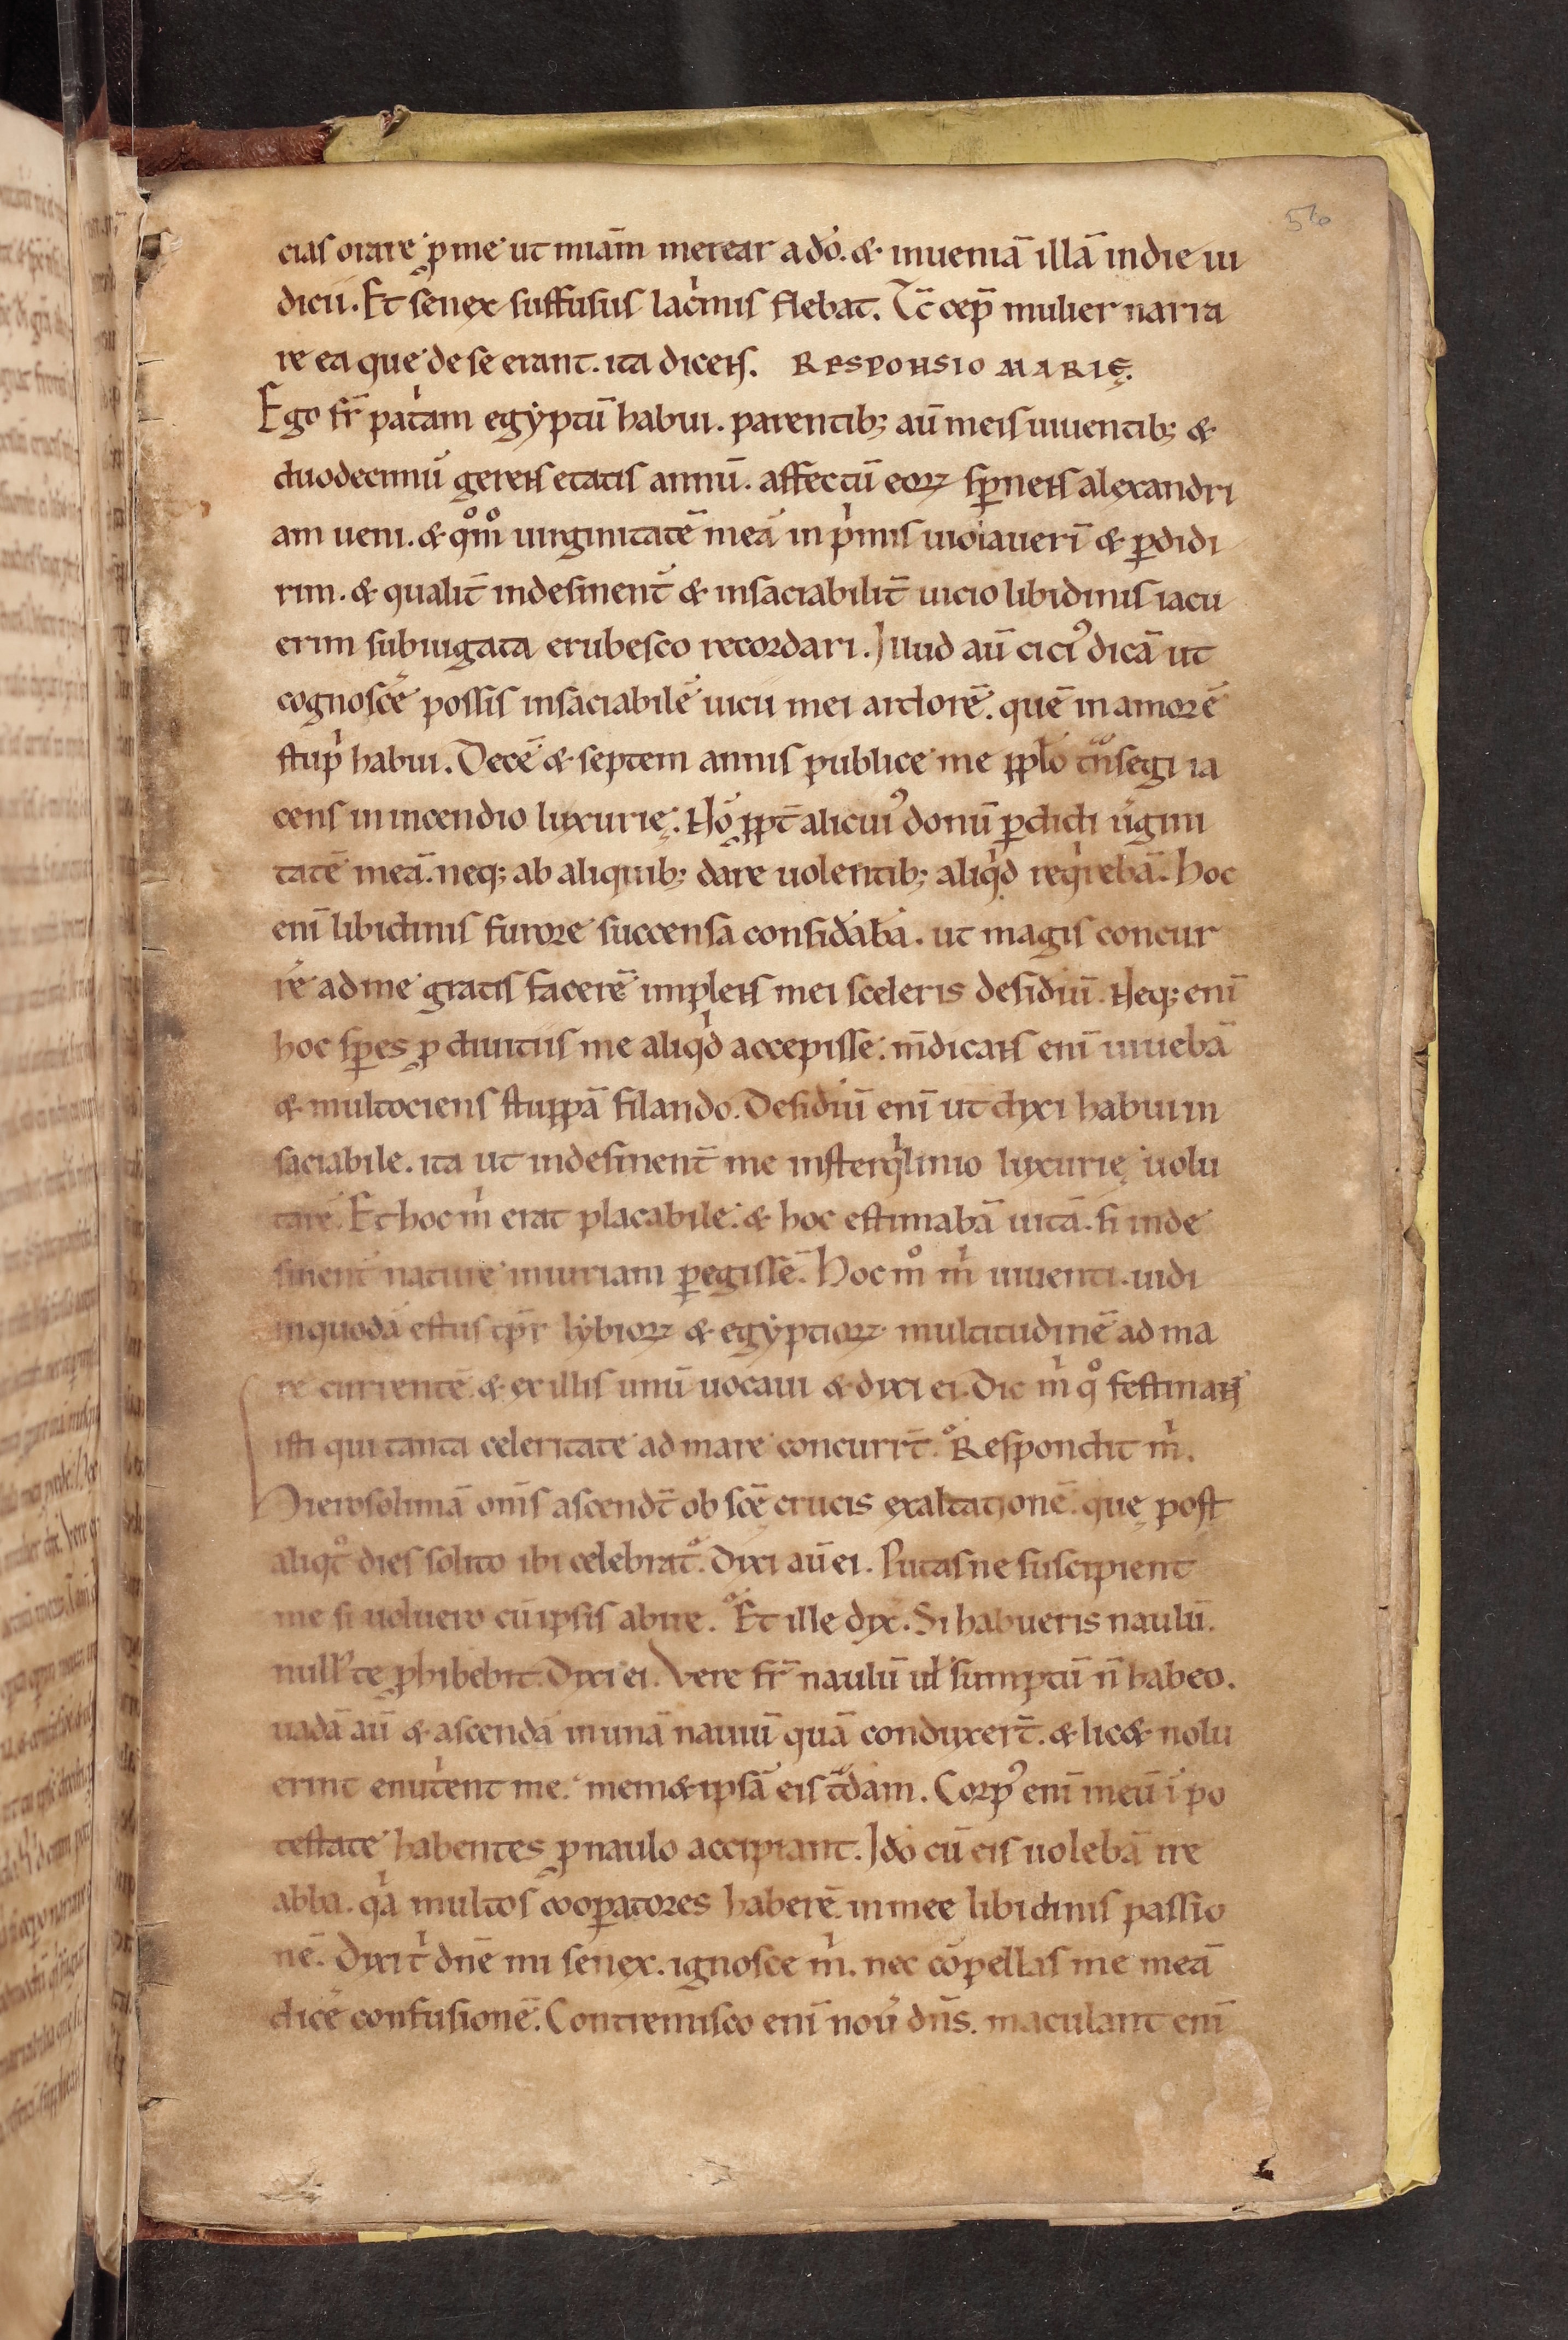 56
cias orare ꝓ me ut miam̄ merear a dō. & inueniā illā in die iu
dicii. Et senex suffusus lac̍mis flebat. Tc̄ cep̄ mulier narra
re ea que de se erant. ita dicens. RESPONSIO MARIĘ.
Ego fr̄ pat̍am egẏptū habui. parentib; aū meis uiuentib; &
duodecimū gerens etatis annū. affectū eoꝝ sꝑnens alexandri
am ueni. & qͦmͦ uirginitatē meā in p̍mis uiolauerī & ꝑdidi
rim. & qualit̄ indesinent̄ & insaciabilit̄ uicio libidinis iacu
erim subiugata erubesco recordari. Illud aū cici᾽ dicā ut
cognoscē possis insaciabilē uicii mei ardorē. quē in amorē
stup̍ habui. Decē & septem annis publice me pp̄lo tn̄segi ia
cens in incendio luxurię. Nō ꝓpt̄ alicui᾽ donū ꝑdidi ūgini
tatē meā. neq; ab aliquib; dare uolentib; aliq̍d req̍rebā. Hoc
enī libidinis furore succensa considābā. ut magis concur
rē ad me gratis facerē implens mei sceleris desidiū. Neq; enī
hoc sꝑes ꝓ diuitiis me aliq̍d accepisse. m̄dicans enī uiuebā
& multociens stuppā filando. Desidiū enī ut dixi habui in
saciabile. ita ut indesinent̄ me in sterq̍linio luxurię uolu
tarē. Et hoc m̍ erat placabile. & hoc estimabā uitā. si inde
sinent̄ nature iniuriam ꝑegissē. Hoc mͦ m̍ uiuenti. uidi
in quodā estus tp̄r lẏbioꝝ & egẏptioꝝ multitudinē ad ma
re currentē. & ex illis unū uocaui & dixi ei. Dic m̍ qͦ festinant
isti qui tanta celeritate ad mare concurrt̄. Respondit m̍.
Hierosolimā om̄s ascendt̄ ob scē crucis exaltationē. que post
aliqͦt dies solito ibi celebrat᾽. Dixi aū ei. Putasne suscipient
me si uoluero cū ipsis abire. Et ille dix̄. Si habueris naulū.
null᾽ te ꝓhibebit. Dixi ei. Vere fr̄ naulū ul̄ sumptū n̄ habeo.
uadā aū & ascendā in unā nauiū quā conduxert̄. & lic& nolu
erint enut̍ent me. mem& ipsā eis tͣdam. Corp᾽ enī meū ī po
testate habentes ꝓ naulo accipiant. Idō cū eis uolebā ire
abba. q̍a multos cooꝑatores haberē in mee libidinis passio
nē. Dixi t̍ dn̄e mi senex. ignosce m̍. nec cōpellas me meā
dicē confusionē. Contremisco enī nou̍ dn̄s. maculant enī